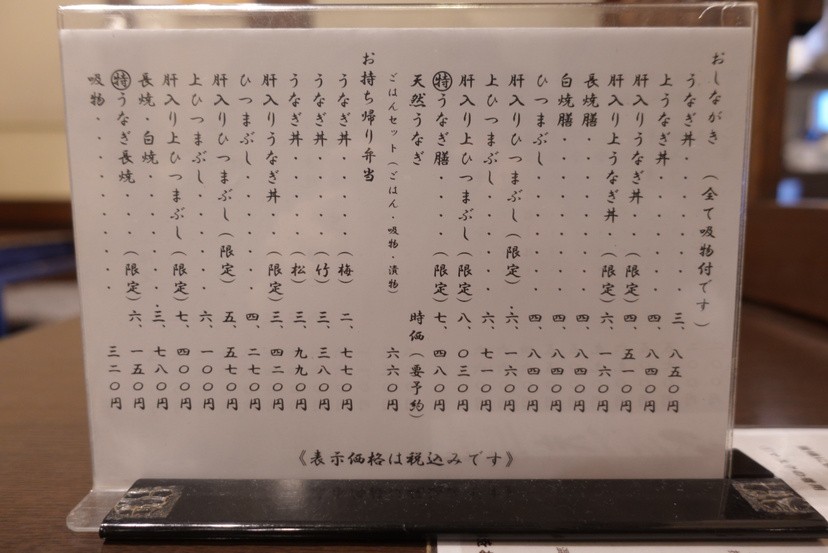 おしながき (全て吸物付です)
うなぎ丼・・・・・・三、八五〇円
上うなぎ丼・・・・・四、八四〇円
肝入りうなぎ丼・・(限定)四、五一〇円
肝入り上うなぎ丼 (限定)六、一六〇円
長焼膳・・・・・・・四、八四〇円
白焼膳・・・・・・・四、八四〇円
ひつまぶし・・・・・四、八四〇円
肝入りひつまぶし(限定)・六、一六〇円
上ひつまぶし・・・・六、七一〇円
肝入り上ひつまぶし(限定)八、〇三〇円
㊕うなぎ膳・・・(限定)七、四八〇円
天然うなぎ 時価(要予約)
ごはんセット(ごはん・吸物・漬物) 六六〇円
お持ち帰り弁当
うなぎ丼・・・・(梅) 二、七七〇円
うなぎ丼・・・・(竹) 三、三八〇円
うなぎ丼・・・・(松) 三、九九〇円
肝入りうなぎ丼・・(限定)三、四二〇円
ひつまぶし・・・・・四、二七〇円
肝入りひつまぶし(限定)・五、五七〇円
上ひつまぶし・・・・六、一〇〇円
肝入り上ひつまぶし(限定)七、四〇〇円
長焼・白焼・・・・・三、七八〇円
㊕うなぎ長焼・・(限定)六、一五〇円
吸物・・・・・・・・三二〇円
《表示価格は税込みです》